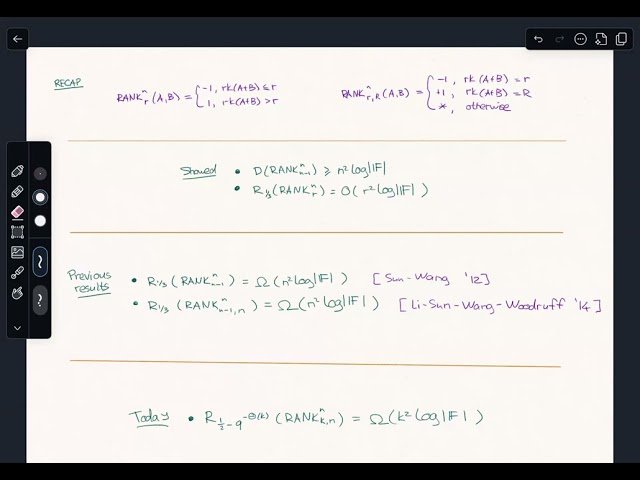 RECAP
RANK^n_r (A,B) = { -1, rk(A+B) ≤ r
1, rk(A+B) > r
RANK^n_{r,R} (A,B) = { -1, rk(A+B) = r
+1, rk(A+B) = R
*, otherwise
Showed • D(RANK^n_{n-1}) ≥ n² log|F|
• R_{1/3}(RANK^n_r) = O( r² log|F| )
Previous results • R_{1/3}(RANK^n_{n-1}) = Ω(n² log|F|) [Sun-Wang '12]
• R_{1/3}(RANK^n_{n-1,n}) = Ω(n² log|F|) [Li-Sun-Wang-Woodruff '14]
Today • R_{1/2 - q^{-Θ(k)}} (RANK^n_{k,n}) = Ω(k² log|F|)